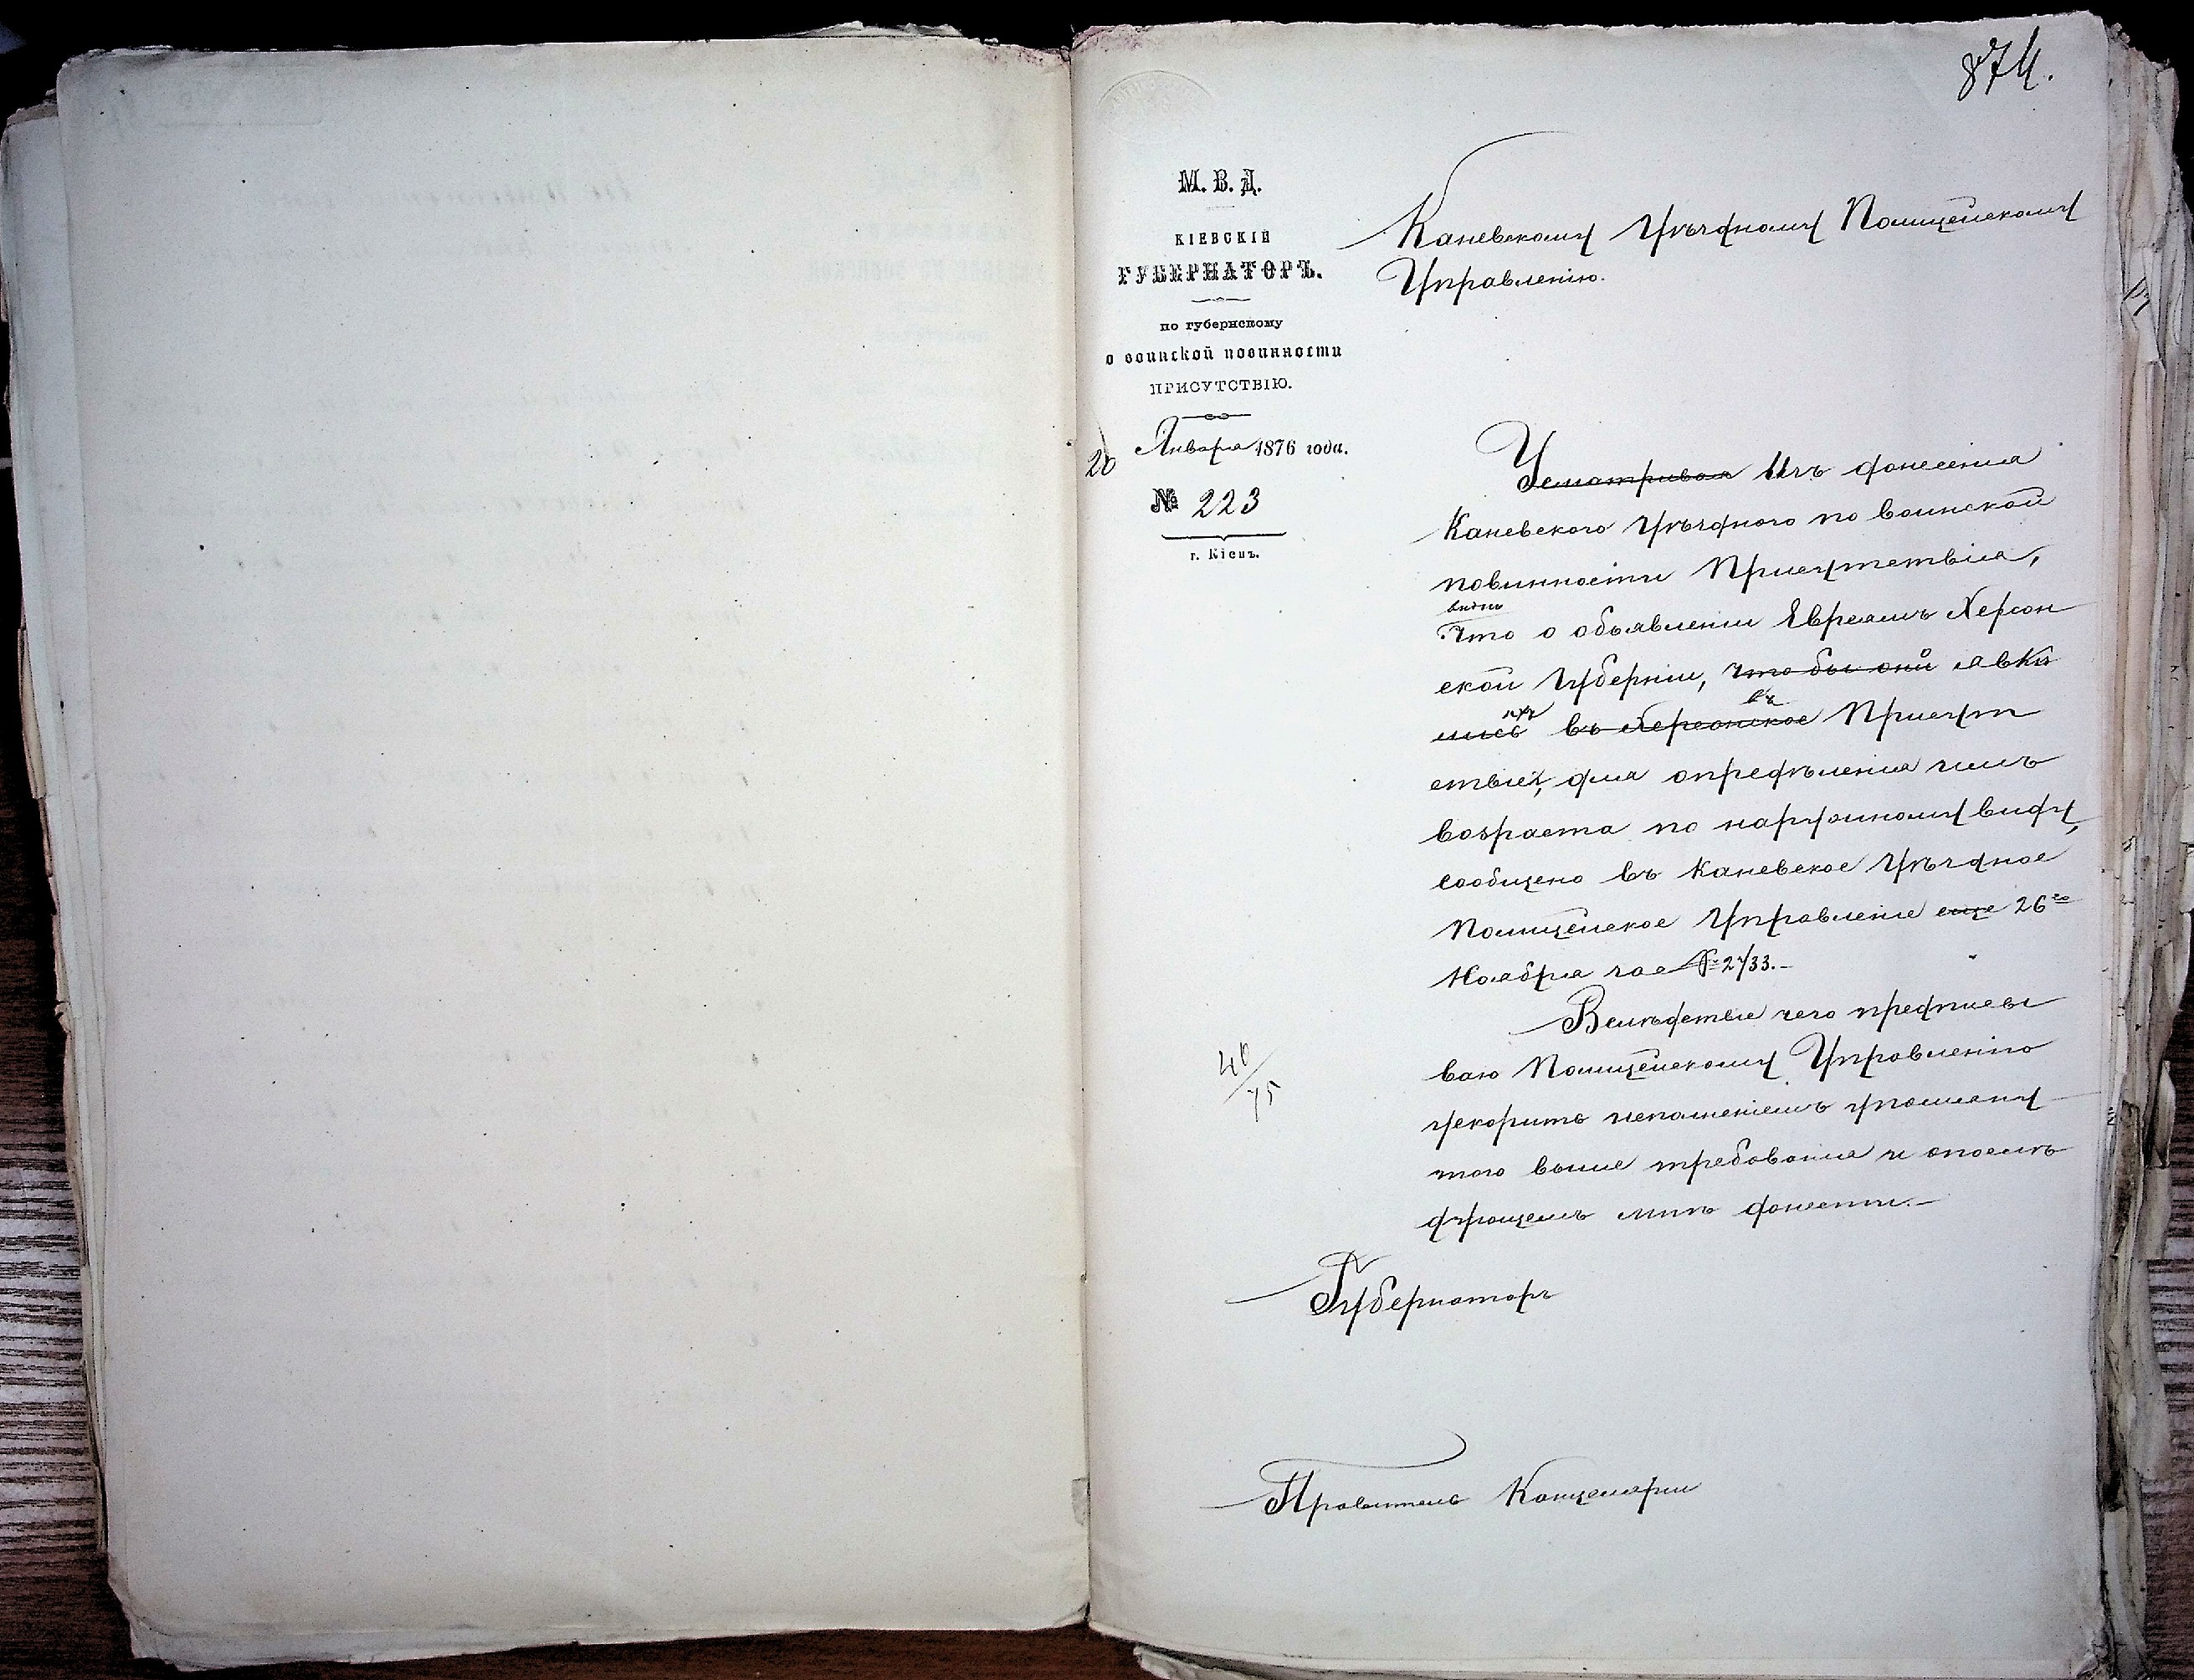 874.
М. В. Д.
КІЕВСКІЙ
ГУБЕРНАТОРЪ.
по губернскому
о воинской повинности
ПРИСУТСТВІЮ.
20 Января 1876 года.
№ 223
г. Кіевъ.
Каневскому Уѣздному Полицейскому
Управленію.
Усматривая Изъ донесенія
Каневскаго Уѣзднаго по воинской
повинности Присутствія,
видно
что о объявленіи Евреямъ Херсон
ской Губерніи, что бы они явки
ихъ въ
лись въ Херсонское Присут
ствіе, для опредѣленія имъ
возраста по наружному виду,
сообщено въ Каневское Уѣздное
Полицейское Управленіе еще 26го
Ноября за № 2733.
Вслѣдствіе чего предписы
ваю Полицейскому Управленію
ускорить исполненіемъ упомяну
того выше требованія и о послѣ
дующемъ мнѣ донести.
40/75
Губернаторъ
Правитель Канцеляріи